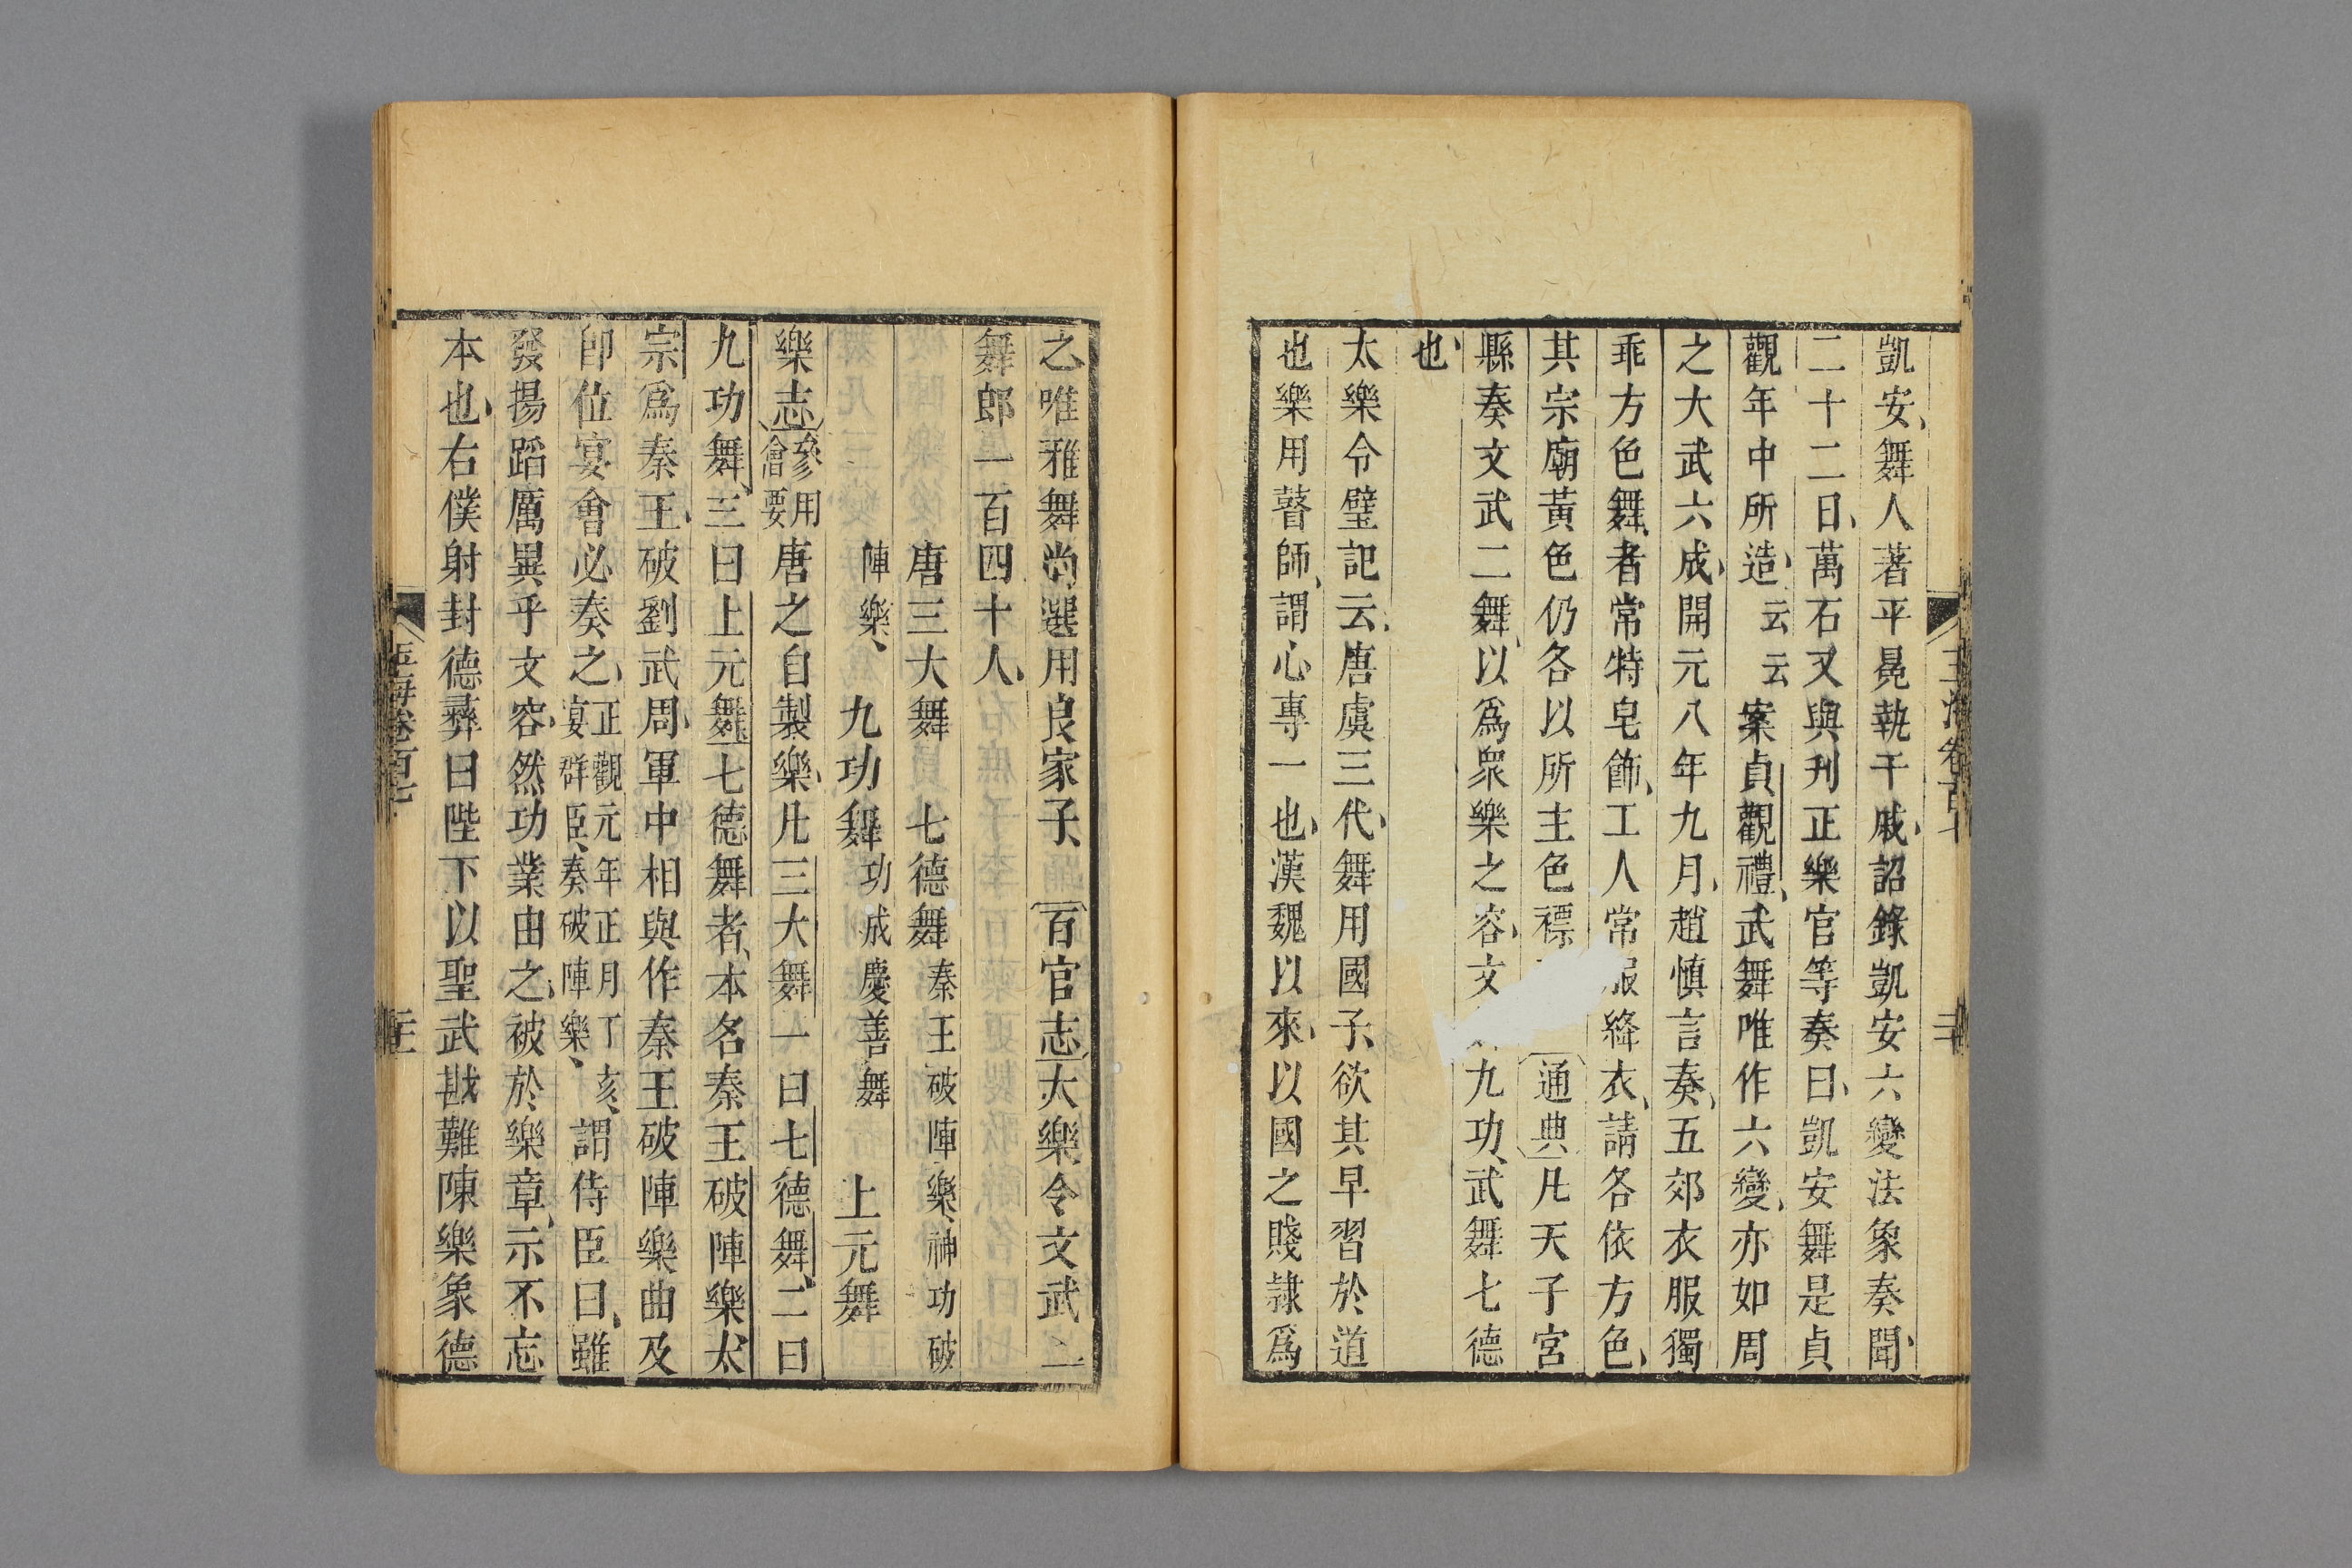 凱安舞人著平冕執干戚詔錄凱安六變法象奏聞
二十二日萬石又與刋正樂官等奏曰凱安舞是貞
觀年中所造云云案貞觀禮武舞唯作六變亦如周
之大武六成開元八年九月趙慎言奏五郊衣服獨
乖方色舞者常特皂飾工人常服絳衣請各依方色
其宗廟黃色仍各以所主色褾通典凡天子宮
縣奏文武二舞以爲眾樂之容文九功武舞七德
也
太樂令壁記云唐虞三代舞用國子欲其早習於道
也樂用瞽師謂心專一也漢魏以來以國之賤隸爲
之唯雅舞尚選用良家子百官志太樂令文武二
舞郎一百四十人
唐三大舞 七德舞 秦王破陣樂神功破
陣樂 九功舞 功成慶善舞 上元舞
樂志參用會要唐之自製樂凡三大舞一曰七德舞二曰
九功舞三曰上元舞七德舞者本名秦王破陣樂太
宗爲秦王破劉武周軍中相與作秦王破陣樂曲及
卽位宴會必奏之正觀元年正月丁亥宴群臣奏破陣樂謂侍臣曰雖
發揚蹈厲異乎文容然功業由之被於樂章示不忘
本也右僕射封德彞曰陛下以聖武戡難陳樂象德
玉海卷百七